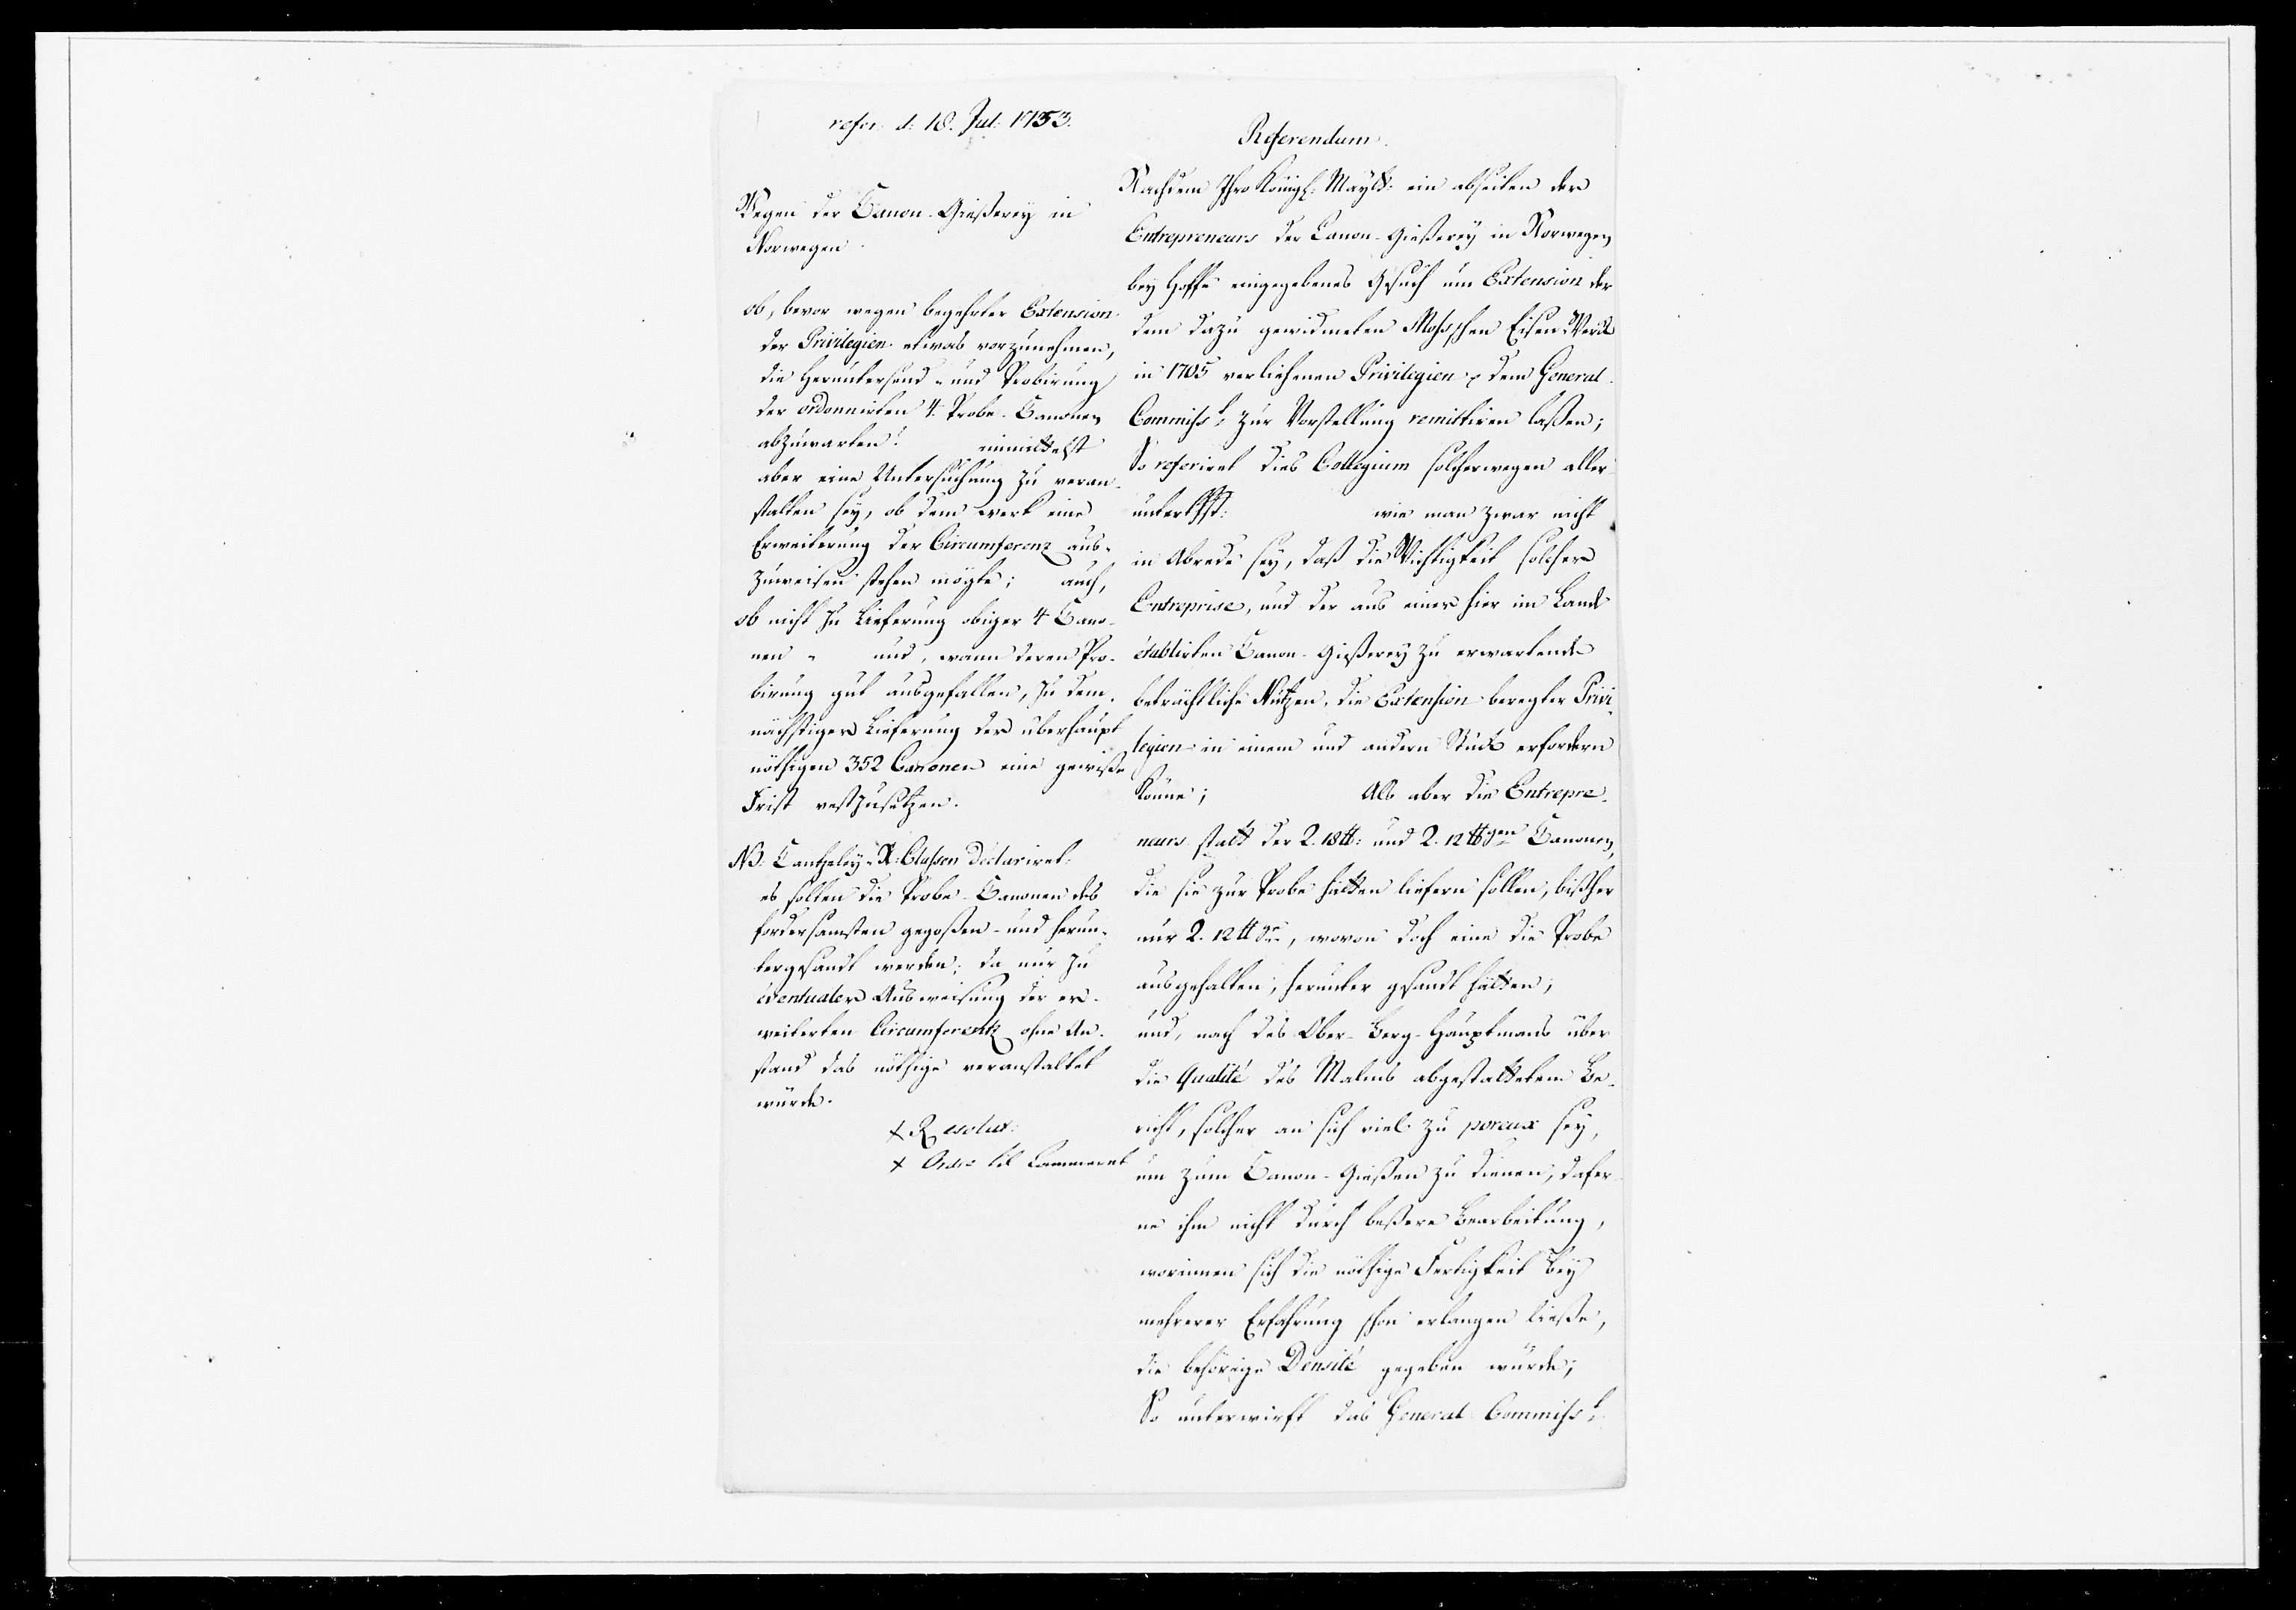 refer. d: 18. Jul: 1753.
Wegen der Canon-Gießerey in
Norwegen.
ob, bevor wegen begehrter Extension
der Privilegien etwas vorzunehmen,
die Heruntersend- und Probirung
der ordonnirten 4. Probe-Canonen
abzuwarten? immittelst
aber eine Untersuchung zu veran-
stalten sey, ob dem Werk eine
Erweiterung der Circumferenz aus-
zuweisen stehen mögte; auch,
ob nicht zu Lieferung obiger 4 Cano-
nen - und, wann deren Pro-
birung gut ausgefallen, zu dem-
nächstiger Lieferung der überhaupt
nöthigen 352 Canonen eine gewiße
Frist vestzusetzen.
NB: Cantzeley-R: Classen declariret:
es sollten die Probe-Canonen des
fordersamsten gegoßen- und herun-
tergesandt werden; da nur zu
éventualer Ausweisung der er-
weiterten Circumferentz ohne An-
stand das nöthige veranstaltet
würde.
+ Resolut:
+ Ordre til Cammeret
Referendum.
Nachdem Ihro Königl: Maytt: ein abseiten der
Entrepreneurs der Canon-Gießerey in Norwegen
bey Hoffe eingegebenes Gesuch um Extension der
dem dazu gewidmeten Mossischen Eisen-Werck
in 1705 verliehenen Privilegien, dem General-
Commiss.t zur Vorstellung remittiren laßen;
So referiret dies Collegium solcherwegen aller-
unterthst: wie man zwar nicht
in Abrede sey, daß die Wichtigkeit solcher
Entreprise, und der aus einer hier im Lande
établirten Canon-Gießerey zu erwartende
beträchtliche Nutzen, die Extension beregter Privi-
legien in einem und andern Stück erfordern
könne; Als aber die Entrepre-
neurs statt der 2. 18 ℔: und 2. 12 ℔digen Canonen,
die sie zur Probe hätten liefern sollen, bißher
nur 2. 12 ℔dge, wovon doch eine die Probe
ausgehalten, herunter gesandt hätten;
und, nach des Ober-Berg-Hauptmans über
die Qualité des Malms abgestattetem Be-
richt, solcher an sich viel zu poreux sey,
um zum Canon-Gießen zu dienen, dafer-
ne ihm nicht durch beßere Bearbeitung,
worinnen sich die nöthige Fertigkeit bey
mehrerer Erfahrung schon erlangen ließe,
die behörige Densité gegeben würde;
So unterwirft das General-Commiss.t